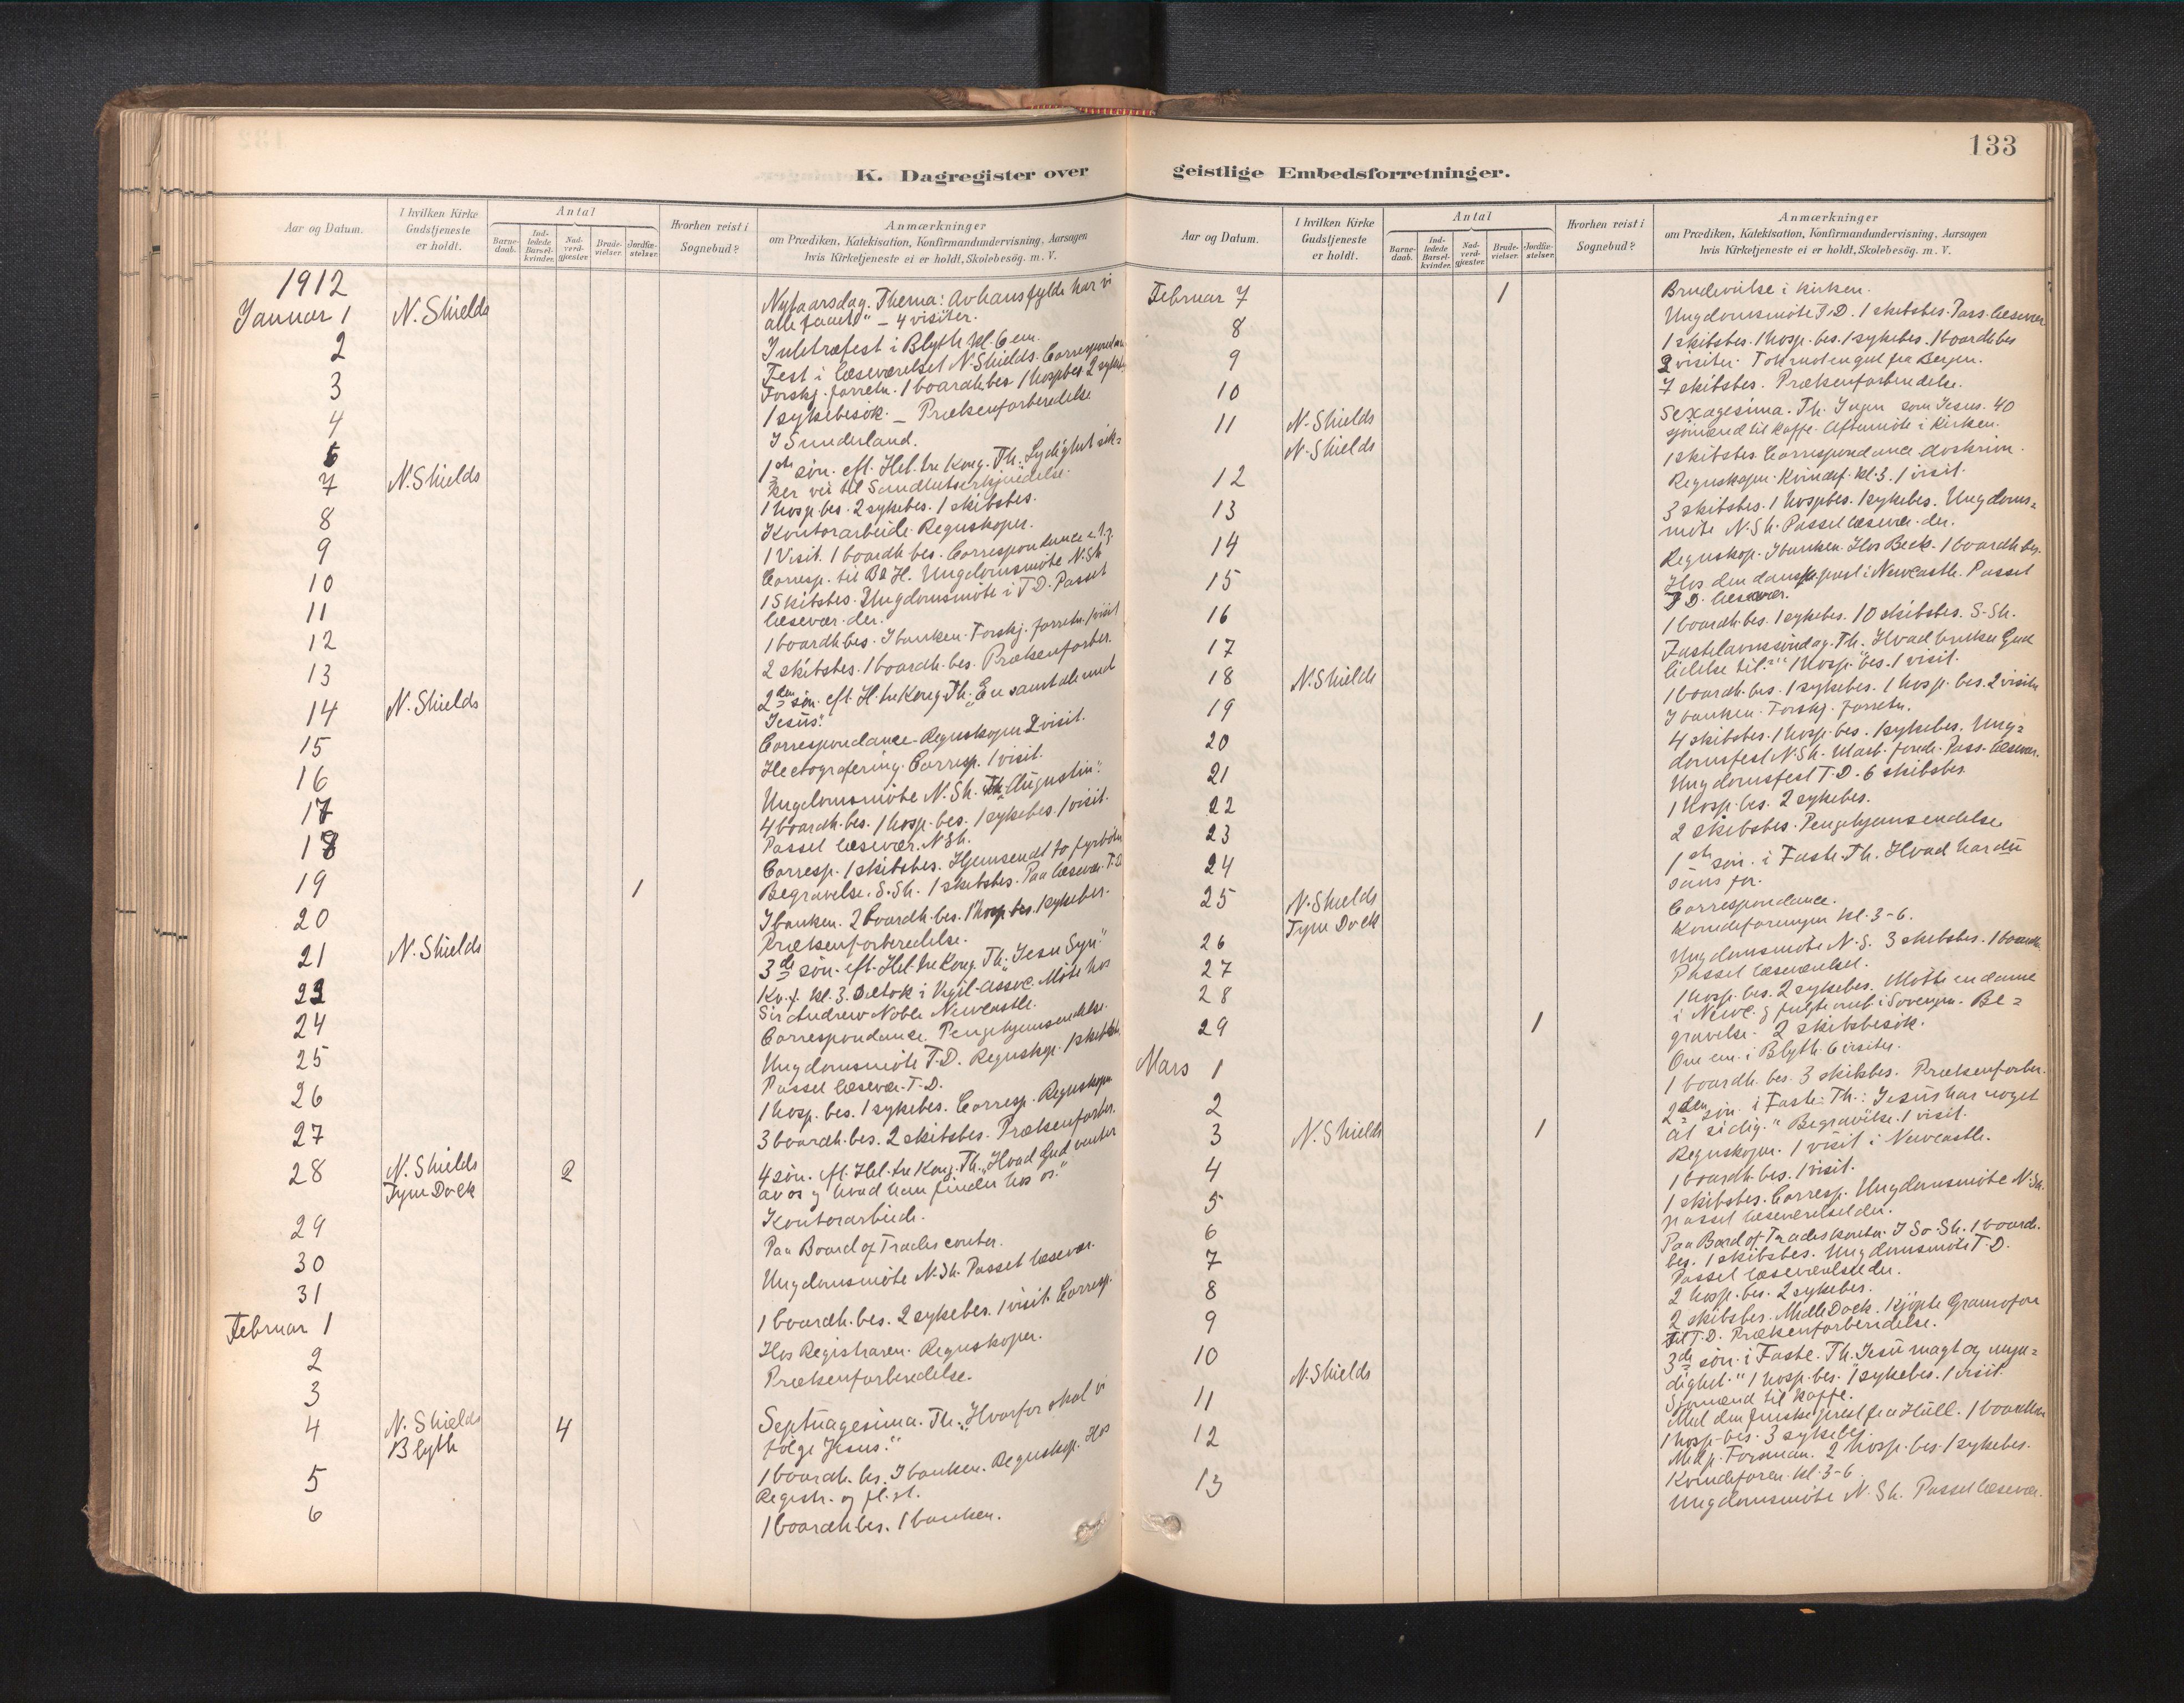 133
K. Dagregister over geistlige Embedsforretninger.
Aar og Datum.
I hvilken Kirke Gudstjeneste er holdt.
Antal
Barne-daab.
Ind-ledede Barsel-kvinder.
Nad-verd-gjæster.
Brude-vielser.
Jordfæ-stelser.
Hvorhen reist i Sognebud?
Anmærkninger
om Prædiken, Katekisation, Konfirmandundervisning, Aarsagen
hvis Kirketjeneste ei er holdt, Skolebesög. m. V.
1912
Januar 1 N. Shields Nytaarsdag. Thema: Av hans fylde har vi
alle faaet" – 4 visiter.
2 Juletræfest i Blyth kl. 6 em.
3 Fest i læseværelset N. Shields. Correspondan
Forskj. forretn. 1 boardh.bes 1 hospbes 2 sykeb.
4 1 sykebesök. – Prækenforberedelse
5 I Sunderland.
7 N. Shields 1ste søn. eft. Hel. tre Kong. Th: Lydighet sik=
ker vei til Sandhetserkjendelse.
8 1 hosp. bes. 2 sykebes. 1 skibsbes.
9 Kontorarbeide. Regnskaper.
10 1 Visit. 1 boardh bes. Correspondance
Corresp. til B& H. Ungdomsmöte N. Sh
11 1 Skibsbes. Ungdomsmöte i T.D. Passet
læsevær. der.
12 1 boardh.bes. I banken. Forskj. forretn. 1 visit
13 2 skibsbes. 1 boardh. bes. Prækenforber.
14 N. Shields 2den søn. eft. H. tre Kong. Th. "En samtale med
Jesus."
15 Correspondance. Regnskaper 2 visit.
16 Hectografering. Corresp. 1 visit.
17 Ungdomsmöte N. Sh. "Augustin".
18 4 boardh. bes. 1 hosp. bes. 1 sykebes. 1 visit.
Passet læsevær. N Sh.
19 1 Corresp. 1 skibsbes. Hjemsendt to fyrbötere
Begravelse. S. Sh. 1 skibsbes. Paa læsevær. T.D
20 I banken. 2 boardh. bes. 1 hosp. bes. 1 sykebes.
Prækenforberedelse.
21 N. Shields 3de søn. eft. Hel. tre Kong. Th: "Jesu Syn."
22 Kv. f. kl. 3. Deltok i Vigil. Assoc. Möte hos
Sir Andrew Noble Newcastle.
24 Correspondance. Pengehjemsendelse.
25 Ungdomsmöte T.D. Regnskap. 1 skibsbes.
Passet læsevær. T.D.
26 1 hosp. bes. 1 sykebes. Corresp. Regnskaper
27 3 boardh. bes. 2 skibsbes. Prækenforber.
28 N. Shields 2 4 søn. eft. Hel. tre Kong. Th. "Hvad Gud venter
Tyne Dock av os og hvad han finder hos os."
29 Kontorarbeide.
30 Paa Board of Trades contor.
31 Ungdomsmöte N. Sh. Passet læsevær.
Februar 1 1 boardh. bes. 2 sykebes. 1 visit. Corresp.
2 Hos Registraren. Regnskaper.
3 Prækenforberedelse.
4 N. Shields 4 Septuagesima. Th: "Hvorfor skal vi
Blyth følge Jesus."
5 1 boardh. bes. I banken. Regnskap. Hos
Registr. og fl. st.
6 1 boardh bes. I banken.
Februar 7 1 Brudevielse i kirken.
8 Ungdomsmöte T.D. 1 skibsbes. Pass. læsevær
1 skibsbes. 1 hosp. bes. 1 sykebes. 1 boardh bes
9 2 visiter. Tok mot en gut fra Bergen.
10 7 skibsbes. Prækenforberedelse.
11 N. Shields Sexagesima. Th. Ingen som Jesus. 40
N. Shields sjömænd til kaffe. Aftenmöte i Kirken.
12 1 skibsbes. Correspondance
Regnskaper. Kvindef. kl. 3. 1 visit.
13 3 skibsbes. 1 hospbes. 1 sykebes. Ungdoms=
möte N. Sh. Passet læsevær. der.
14 Regnskap. I banken. Hos Beck. 1 boardh. bes.
15 Hos den danske prest i Newcastle. Passet
T.D. læsevær.
16 1 boardh. bes. 1 sykebes. 10 skibsbes. S. Sh.
17
18 N. Shields Fastelavnssøndag. Th. Hvad bruker Gud
lidelse til?" 1 hosp. bes. 1 visit.
19 1 boardh. bes. 1 sykebes. 1 hosp. bes. 2 visiter
20 I banken. Forskj. forretn.
21 4 skibsbes. 1 hosp. bes. 1 sykebes. Ung=
domsfest N. Sh. Pass. læsevær.
22 Ungdomsfest T.D. 6 skibsbes.
23 1 hosp. bes. 2 sykebes.
24 2 skibsbes. Pengehjemsendelse
25 N. Shields 1ste søn. i Faste. Th. Hvad har du
Tyne Dock sans for.
26 Correspondance.
27 Kvindeforeningen kl. 3-6.
28 Ungdomsmöte N. S. 3 skibsbes. 1 boardh.
Passet læseværelset.
29 1 1 hosp. bes. 2 sykebes. Mötte en dame
i Newc. og fulgte omb. i Be=
gravelse. 2 skibsbesök.
Mars 1 Om em. i Blyth. 6 visiter.
2 1 boardh. bes. 3 skibsbes. Prækenforber.
3 N. Shields 1 2den søn. i Faste. Th.: Jesus har noget
at si dig." Begravelse. 1 visit.
4 Regnskaper. 1 visit i Newcastle.
5 1 boardh. bes. 1 visit.
6 1 skibsbes. Corresp. Ungdomsmöte N. Sh.
Passet læseværelset der.
7 Paa Board of Trades kontor. I So. Sh. 1 boardh.
bes. 1 skibsbes. Ungdomsmöte T.D.
Passet læseværelset der.
8 2 hosp. bes. 2 sykebes.
9 2 skibsbes. Midle Dock. Kjöpte Gramofon
til T.D. Prækenforberedelse.
10 N. Shields 3de søn. i Faste. Th. Jesu magt og myn=
dighet." 1 hosp. bes. 1 sykebes. 1 visit.
Sjömænd til kaffe.
11 Med den finske prest fra Hull. 1 boardhbes
1 hosp. bes. 3 sykebes.
12 Med p. Forsman. 2 hosp. bes. 1 sykebes.
Kvindeforen. kl. 3-6.
13 Ungdomsmöte N. Sh. Passet læsevær.